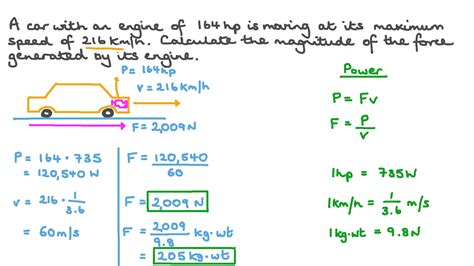 A car with an engine of 164 hp is moving at its maximum
speed of 216 km/h. Calculate the magnitude of the force
generated by its engine.
P = 164hp
v = 216km/h
F = 2,009N
P = 164 · 735
= 120,540 W
v = 216 · 1/3.6
= 60m/s
F = 120,540/60
F = 2,009 N
F = 2,009/9.8 kg·wt
= 205 kg·wt
Power
P = Fv
F = P/v
1hp = 735W
1km/h = 1/3.6 m/s
1kg·wt = 9.8N